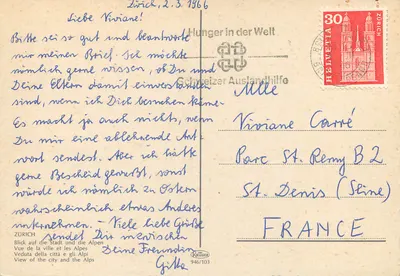 Zürich, 2.3.1966
Liebe Viviane!
Bitte sei so gut und beantworte
mir meinen Brief. Ich möchte
nämlich gerne wissen, ob Du und
Deine Eltern damit einverstanden
sind, wenn ich Dich besuchen käme.
Es macht ja auch nichts, wenn
Du mir eine ablehnende Ant-
wort sendest. Aber ich hätte
gerne Bescheid gewußt, sonst
würde ich nämlich zu Ostern
wahrscheinlich etwas Anderes
unternehmen. – Viele liebe Grüße
sendet Dir inzwischen
Deine Freundin
Gitta
ZÜRICH
Blick auf die Stadt und die Alpen
Vue de la ville et les Alpes
Veduta della città e gli Alpi
View of the city and the Alps
946/103
Hunger in der Welt
Schweizer Auslandhilfe
30
HELVETIA
ZÜRICH
Mlle
Viviane Carré
Parc St. Remy B2
St. Denis (Seine)
FRANCE